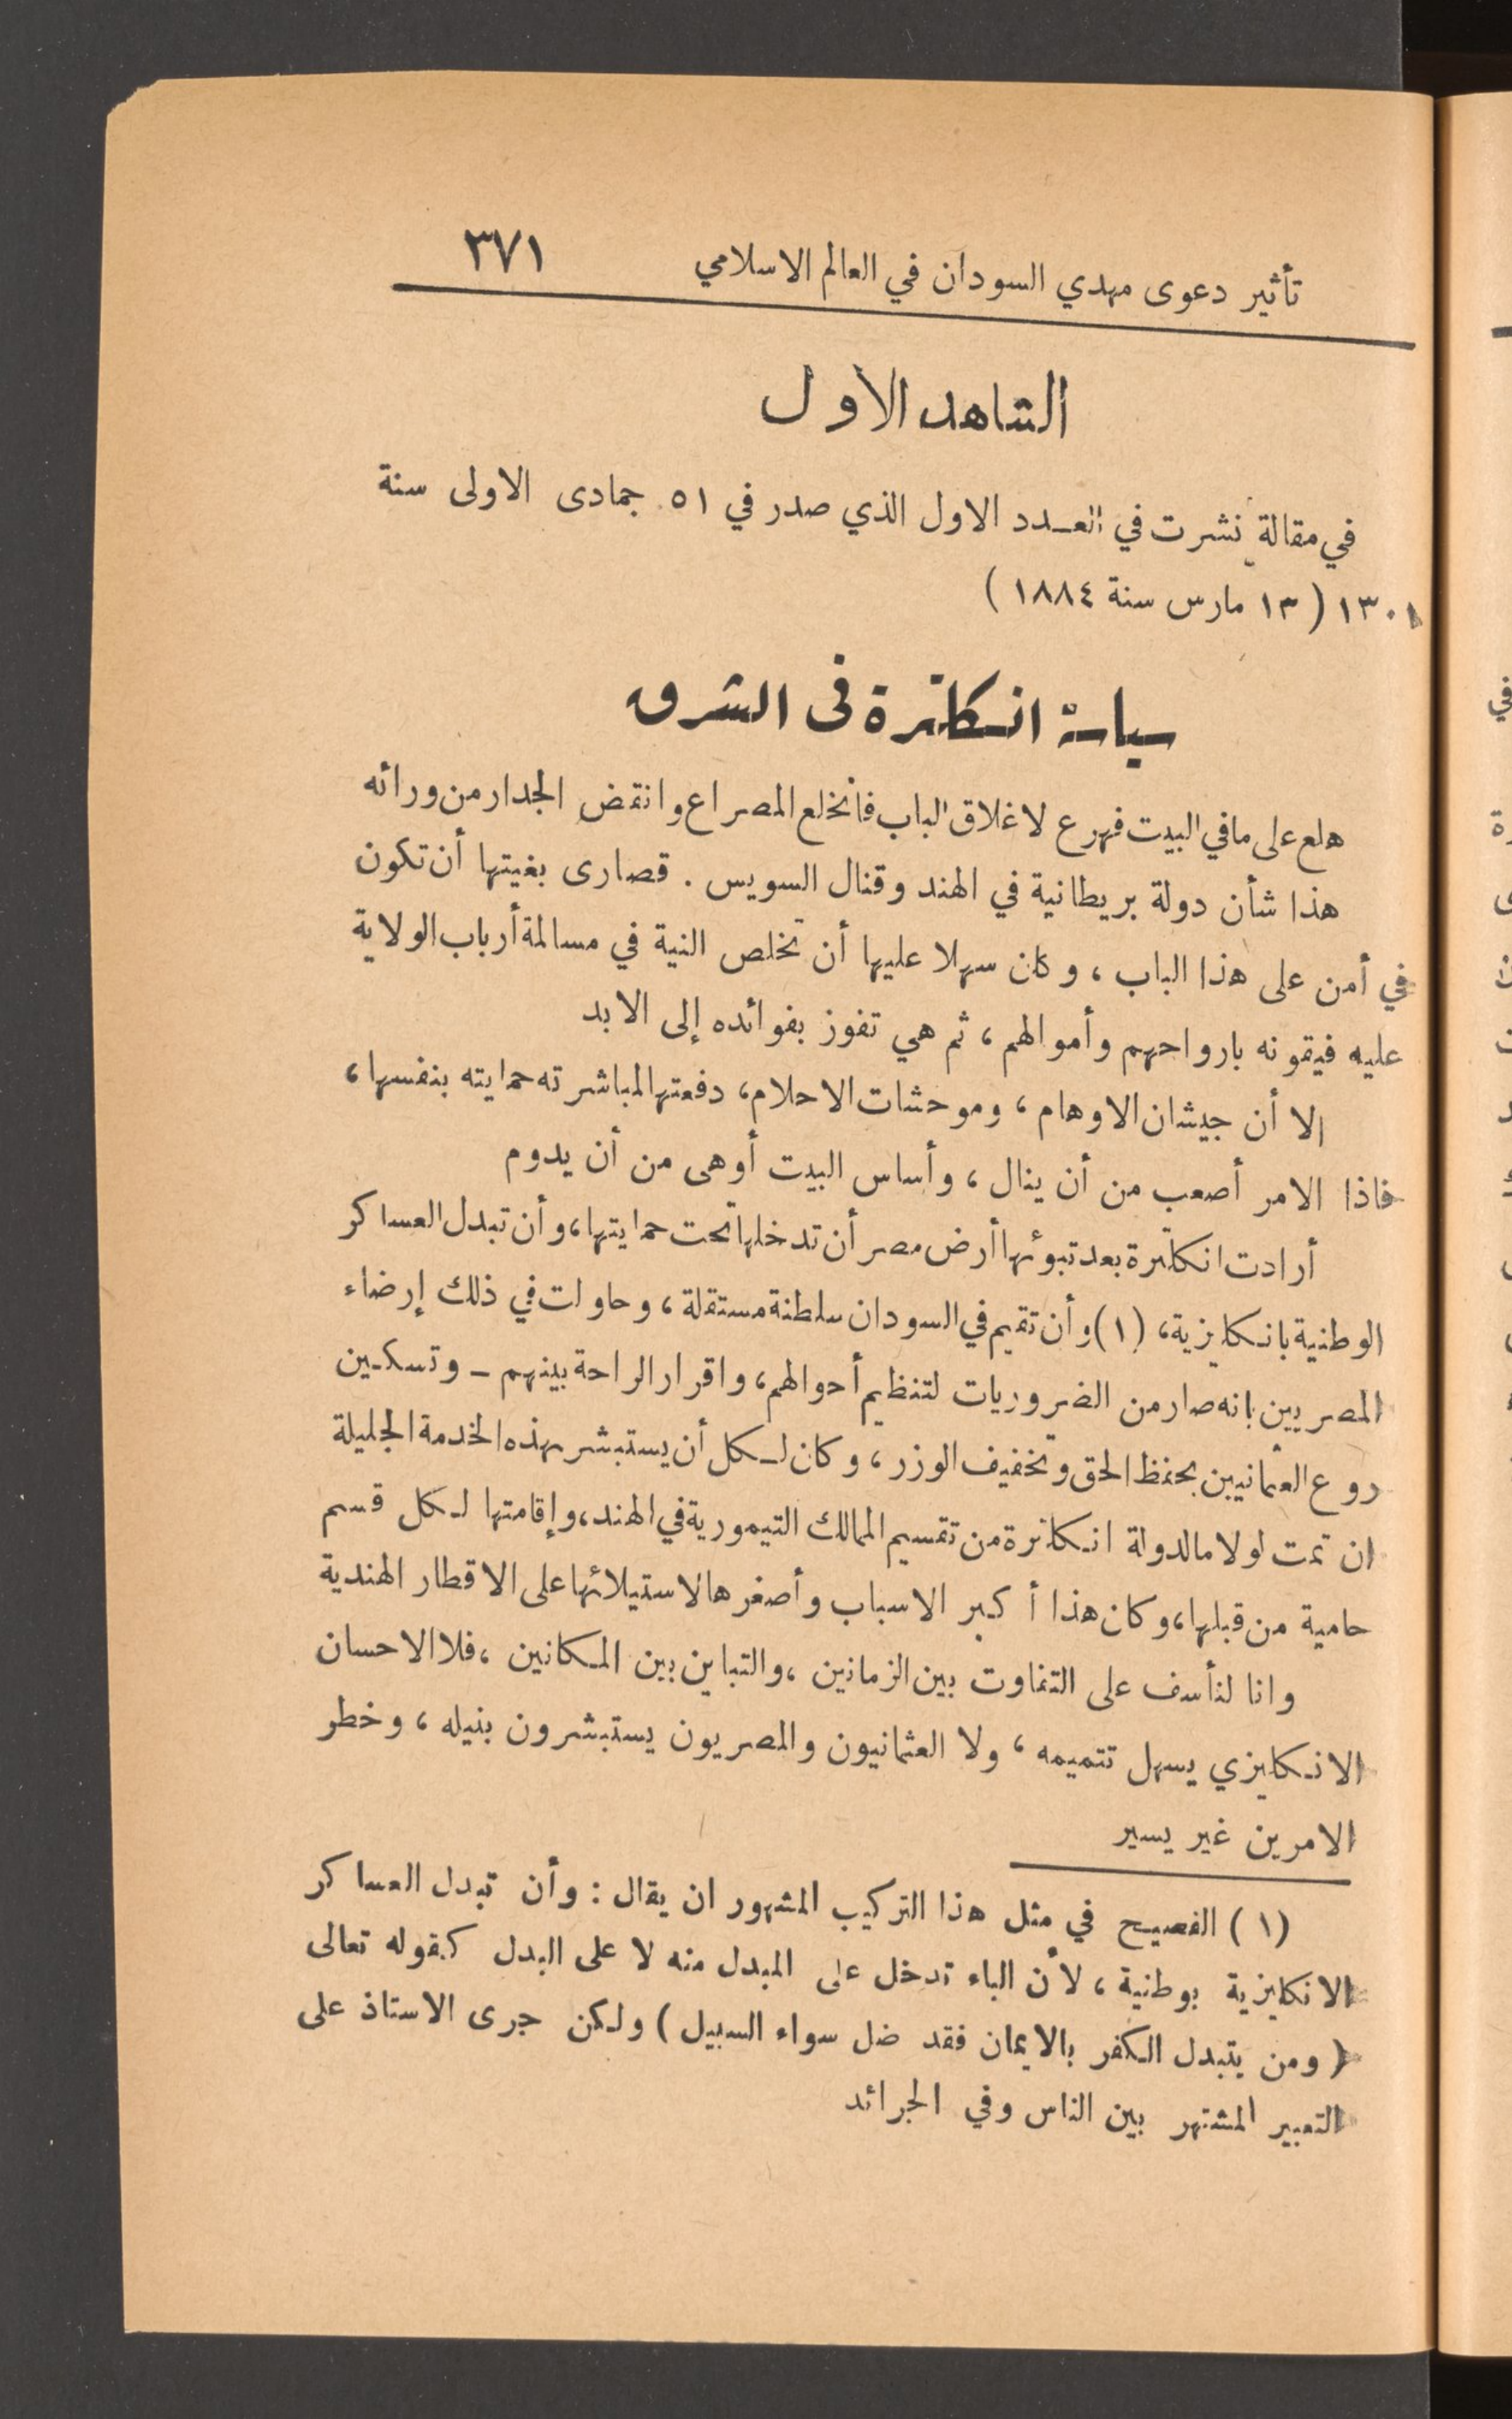 تأثير دعوى مهدي السودان في العالم الاسلامي ٣٧١
الشاهد الاول
في مقالة نشرت في العدد الاول الذي صدر في ٥١ جمادى الاولى سنة
١٣٠١ ( ١٣ مارس سنة ١٨٨٤ )
سياسة انكلترة في الشرق
هلع على مافي البيت فهرع لاغلاق الباب فانخلع المصراع وانقض الجدار من ورائه
هذا شأن دولة بريطانية في الهند وقنال السويس . قصارى بغيتها أن تكون
في أمن على هذا الباب ، وكان سهلا عليها أن تخلص النية في مسالمة أرباب الولاية
عليه فيقونه بارواحهم وأموالهم ، ثم هي تفوز بفوائده إلى الابد
الا أن جيشان الاوهام ، وموحشات الاحلام ، دفعتها لمباشرته حمايته بنفسها ،
فاذا الامر أصعب من أن ينال ، وأساس البيت أوهى من أن يدوم
أرادت انكلترة بعد تبوئها أرض مصر أن تدخلها تحت حمايتها ، وأن تبدل العساكر
الوطنية بانكليزية ، (١) وأن تقيم في السودان سلطنة مستقلة ، وحاولت في ذلك إرضاء
المصريين بانه صار من الضروريات لتنظيم أحوالهم ، واقرار الراحة بينهم - وتسكين
روع العثمانيين بحفظ الحق وتخفيف الوزر ، وكان لكل أن يستبشر بهذه الخدمة الجليلة
ان تمت لولا مالدولة انكلترة من تقسيم الممالك التيمورية في الهند ، وإقامتها لكل قسم
حامية من قبلها ، وكان هذا أكبر الاسباب وأصغرها لاستيلائها على الاقطار الهندية
وانا لنأسف على التفاوت بين الزمانين ، والتباين بين المكانين ، فلا الاحسان
الانكليزي يسهل تتميمه ، ولا العثمانيون والمصريون يستبشرون بنيله ، وخطر
الامرين غير يسير
(١) الفصيح في مثل هذا التركيب المشهور ان يقال : وأن تبدل العساكر
الانكليزية بوطنية ، لأن الباء تدخل على المبدل منه لا على البدل كقوله تعالى
( ومن يتبدل الكفر بالايمان فقد ضل سواء السبيل ) ولكن جرى الاستاذ على
التعبير المشتهر بين الناس وفي الجرائد